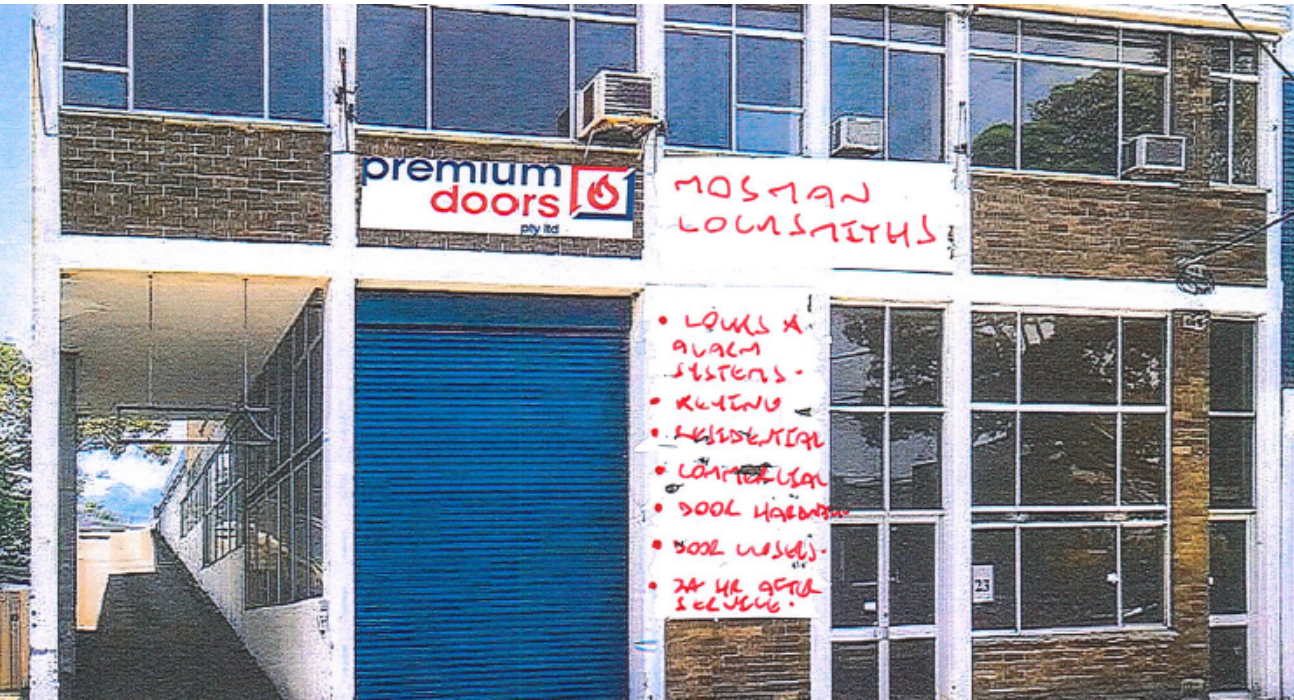 premium
doors
pty ltd
MOSMAN
LOCKSMITHS
• LOCKS &
ALARM
SYSTEMS.
• KEYING
• RESIDENTIAL
• COMMERCIAL
• DOOR HARDWARE
• DOOR CLOSERS.
• 24 HR AFTER
SERVICE.
23